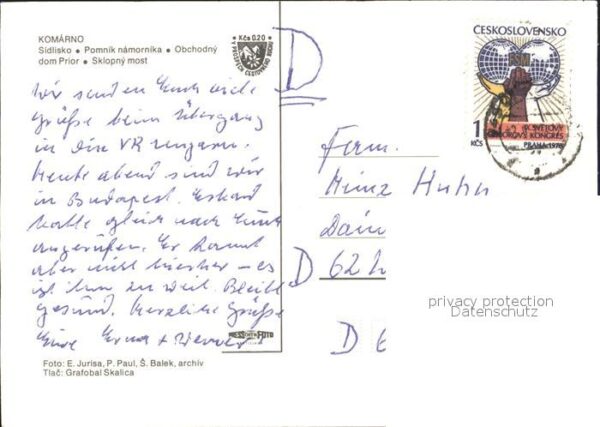 KOMÁRNO
Sídlisko • Pomník námorníka • Obchodný
dom Prior • Sklopný most
Kčs 0,20
V PROSPECH CESTOVNÉHO RUCHU
D
ČESKOSLOVENSKO
FSM
1
KČS
IX. SVETOVÝ
ODBOROVÝ KONGRES
PRAHA 1978
Wir senden Euch viele
Grüße beim Übergang
in die VR Ungarn.
Heute abend sind wir
in Budapest.
hatte gleich nach
angerufen. Er kommt
aber nicht hierher – es
ist ihm zu weit. Bleibt
gesund. Herzliche Grüße
Eure Erna + Werner
Fam.
Heinz Huhn
D 62
D 6
privacy protection
Datenschutz
PRESSFOTO
Foto: E. Jurisa, P. Paul, Š. Balek, archív
Tlač: Grafobal Skalica